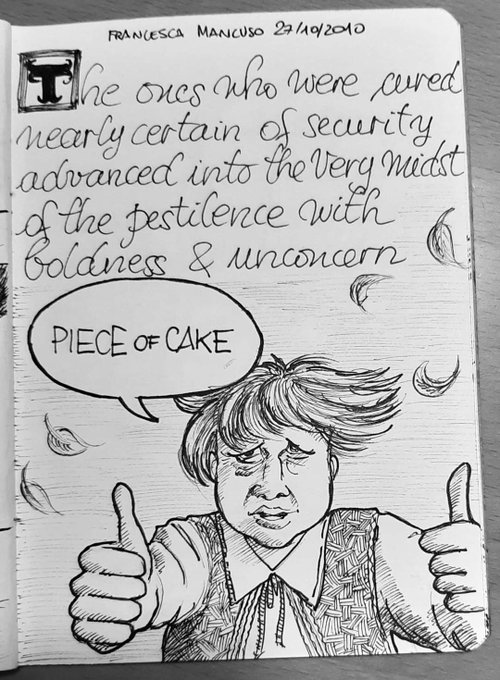 FRANCESCA MANCUSO 27/10/2010
The ones who were cured
nearly certain of security
advanced into the very midst
of the pestilence with
boldness & unconcern
PIECE OF CAKE